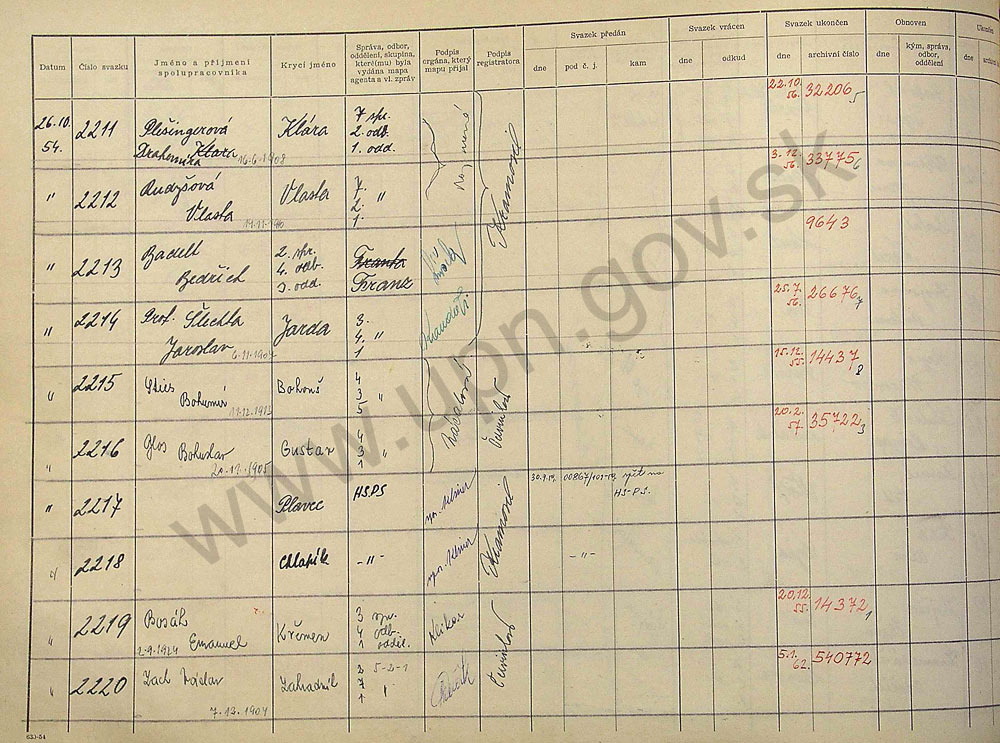 Datum
Číslo svazku
Jméno a příjmení
spolupracovníka
Krycí jméno
Správa, odbor,
oddělení, skupina,
které(mu) byla
vydána mapa
agenta a vl. zpráv
Podpis
orgána, který
mapu přijal
Podpis
registratora
Svazek předán
dne
pod č. j.
kam
Svazek vrácen
dne
odkud
Svazek ukončen
dne
archivní číslo
Obnoven
dne
kým, správa,
odbor,
oddělení
dne
26.10.
54.
2211
Plešingerová
Drahomíra Klára 16.6.1908
Klára
7 spr.
2. odb.
1. odd.
22.10.
56. 32206
5
" 2212
Rudyšová
Vlasta
Vlasta
7.
2. "
1.
3.12.
56. 33775
6
" 2213
Badelt
Bedřich
2. spr.
4. odb.
3. odd.
Franta
Franz
9643
" 2214
Prof. Šlechta
Jaroslav 6.11.1904
Jarda
3.
4. "
1
25.7.
56. 26676
7
" 2215
Bohumír 11.12.1913
Bohouš
4
3 "
5
15.12.
55. 14437
8
" 2216
Glos Bohuslav
20.12.1905
Gustav
4
3 "
1
20.2.
57. 35722
3
" 2217
Plavec
HSPS
zpět na
HS-P.S.
" 2218
Chlapík
-"-
-"-
" 2219
Bosák
2.9.1924 Emanuel
Křemen
3 spr.
4 odb.
1 odděl.
20.12.
55. 14372
1
" 2220
7.12.1904
Zahradník
5-2-1
5.1.
62. 540772
630-54
www.upn.gov.sk